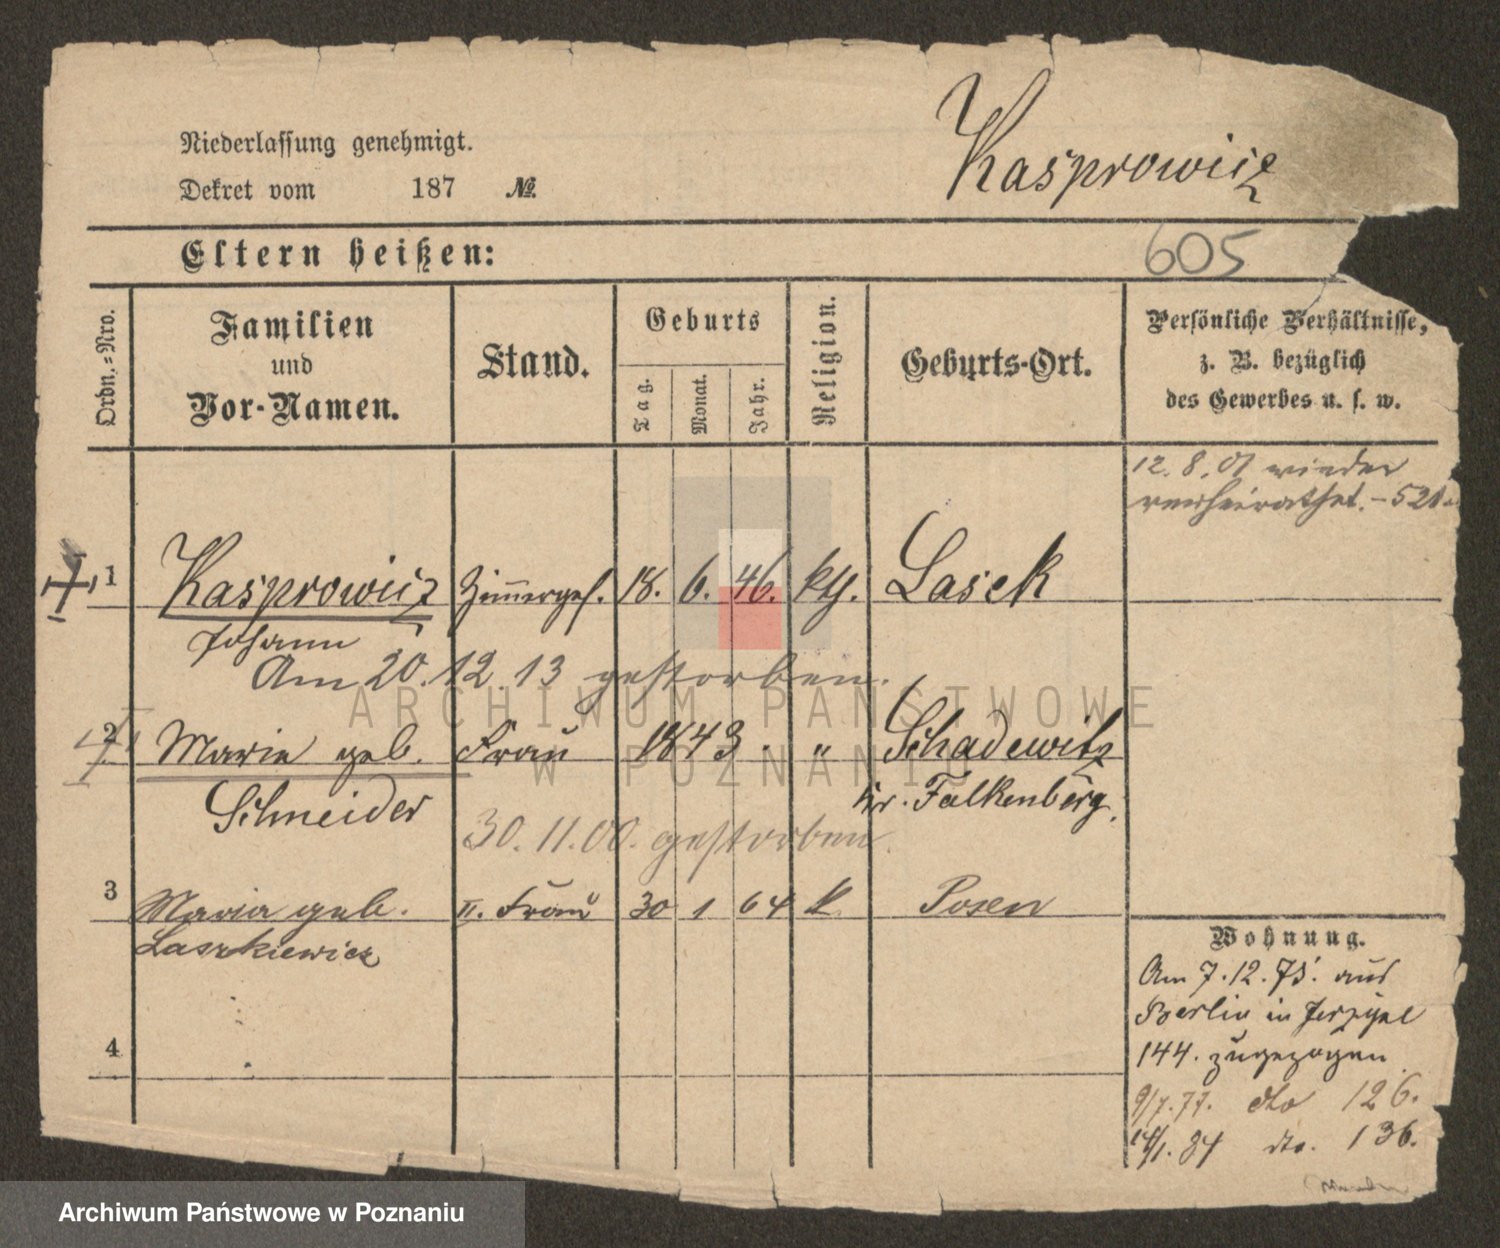 Niederlassung genehmigt.
Dekret vom 187 №.
Kasprowicz
Eltern heißen:
605
Ordn.-Nro.
Familien
und
Vor-Namen.
Stand.
Geburts
Tag.
Monat.
Jahr.
Religion.
Geburts-Ort.
Persönliche Verhältnisse,
z. B. bezüglich
des Gewerbes u. s. w.
12. 8. 01 wieder
verheirathet. - 521
1 Kasprowicz Zimmerges. 18. 6. 46. kth. Lasek
Johann
Am 20. 12. 13 gestorben.
2 Marie geb. Frau 1843. " Schadewitz
Schneider Kr. Falkenberg.
30. 11. 00. gestorben.
3 Maria geb. II. Frau 30 1 64 k. Posen
Laszkiewicz
4
Wohnung.
Am 7. 12. 75. aus
Berlin in Jerzyce
144. zugezogen
9/7. 77. dto 126.
14/1. 84 dto. 136.
ARCHIWUM PAŃSTWOWE
W POZNANIU
Archiwum Państwowe w Poznaniu